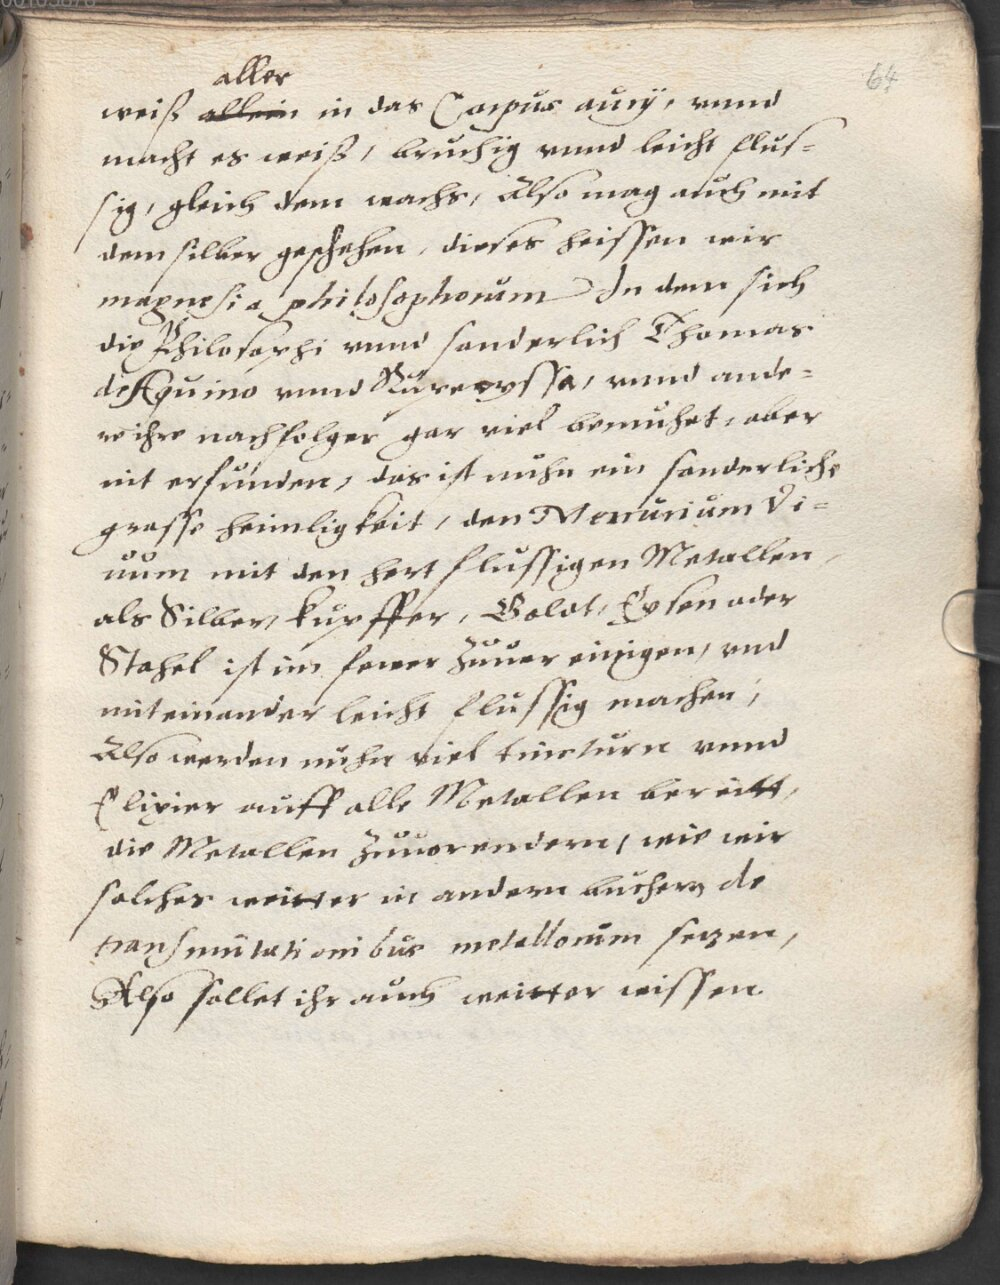 64
aller
weiß allein in das Corpus aurÿ, vnnd
macht es weiß, bruchig vnnd leicht flus=
sig, gleich dem wachs, Also mag auch mit
dem silber geschehen, dieses heissen wir
magnesia philosophorum In dem sich
die Philosophi vnnd sonderlich Thomas
de Aquino vnnd Rupecyssa, vnnd ande=
re ihre nachfolger gar viel bemuhet, aber
nit erfunden, das ist nuhn ein sonderliche
grosse heimligkeit, den Mercurium Vi=
uum mit den hert flussigen Metallen
als Silber, kupffer, Goldt, Eysen oder
Stahel ist im fewer zuuereinigen, vnd
miteinander leicht flussig machen,
Also werden nuhn viel tincturn vnnd
Elixier auff alle Metallen bereitt,
die Metallen zuuorendern, wie wir
solches weitter in andern buchern de
transmutationibus metallorum setzen,
Also sollet ihr auch weitter wissen.